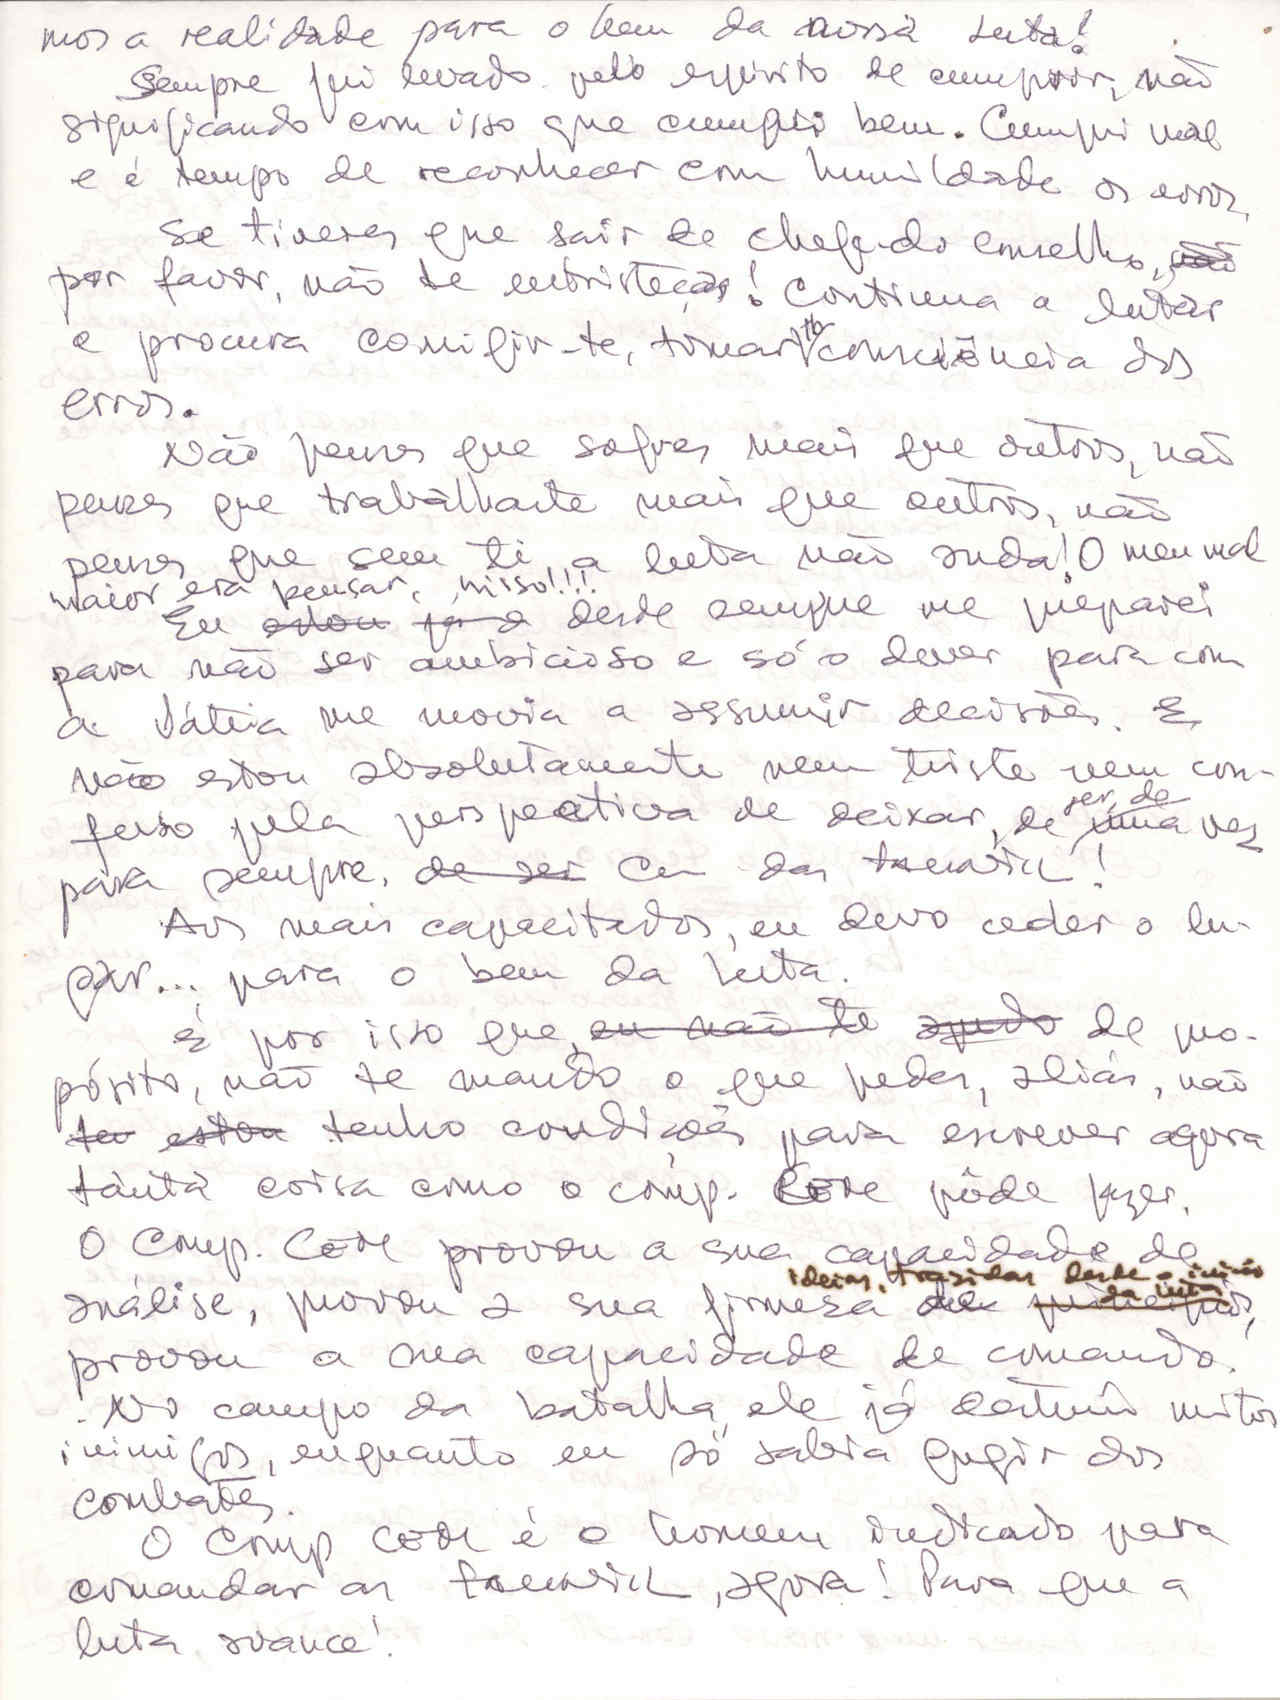 mos a realidade para o bem da nossa luta!
Sempre fui levado pelo espírito de cumprir, não
significando com isso que cumpri bem. Cumpri mal
e é tempo de reconhecer com humildade os erros.
Se tiveres que sair de chefe do conselho, não
por favor, não te entristeças! Continua a lutar
e procura corrigir-te, tomar tb consciência dos
erros.
Não penses que sofres mais que outros, não
penses que trabalhaste mais que outros, não
penses que sem ti a luta não anda! O meu mal
maior era pensar nisso!!!
Eu estou já e desde sempre me preparei
para não ser ambicioso e só o dever para com
a Pátria me movia a assumir decisões. E
não estou absolutamente nem triste nem con-
fuso pela perspectiva de deixar, de uma vez
ser, de
para sempre, de ser Cm das
Aos mais capacitados, eu devo ceder o lu-
gar... para o bem da luta.
É por isso que, eu não te ajudo de pro-
pósito, não te mando o que pedes, aliás, não
te estou tenho condições para escrever agora
tanta coisa como o comp. pôde fazer.
O Comp. provou a sua capacidade de
análise, provou a sua firmeza de princípios,
ideias, trazidas desde o início
da luta
provou a sua capacidade de comando.
No campo da batalha, ele já destruiu mtos
inimigos, enquanto eu só sabia fugir dos
combates.
O Comp é o homem indicado para
comandar as , agora! Para que a
luta, avance!